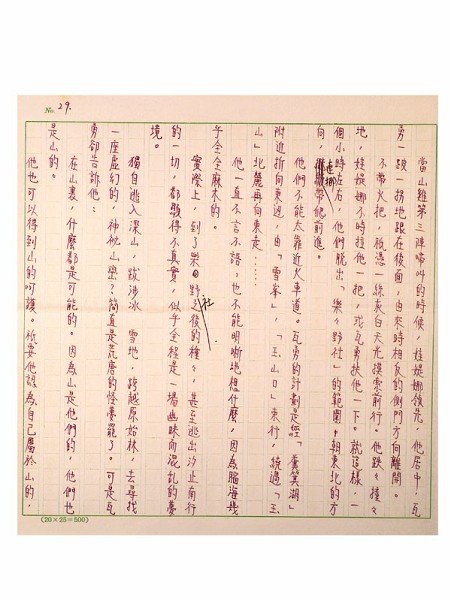 No. 29.
當山雞第三陣啼叫的時候，娃娓娜領先，他居中，瓦
勇一跛一拐地跟在後面，由來時相反的側門方向離開。
不帶火把，祇憑一線灰白天光摸索前行。他跌跌撞撞
地，娃娓娜不時拉他一把，或瓦勇扶他一下。就這樣，一
個小時左右，他們脫出「樂々野社」的範圍，朝東北的方
向，帶他前進。
他們不能太靠近火車道。瓦勇的計劃是經「奮箕湖」
附近折向東邊，由「雪峯」，「玉山口」東行，繞過「玉
山」北麓再向東走……
他一直不言不語。也不能明晰地想什麼，因為腦海幾
乎全全麻木的。
實際上，到了樂々野社之後的種々，甚至逃出汐止南行
的一切，都顯得不真實，似乎全程是一場幽昧而混乱的夢
境。
獨自逃入深山，跋涉冰 雪地，跨越原始林，去尋找
一座虛幻的，神秘山巒？簡直是荒唐的怪夢罷了。可是瓦
勇卻告訴他：
在山裏，什麼都是可能的。因為山是他們的，他們也
是山的。
他也可以得到山的呵護。祇要他認為自己屬於山的，
(20×25=500)